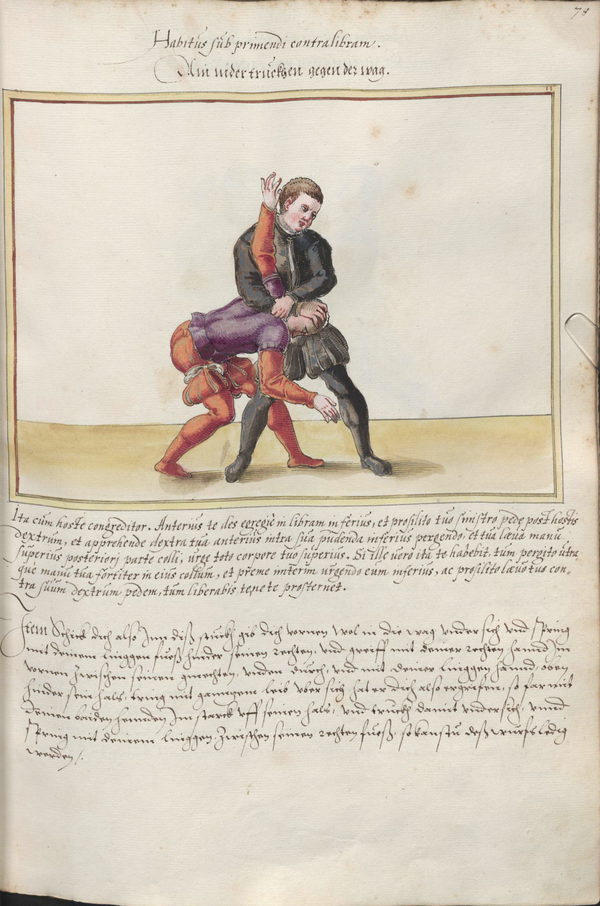 78
Habitus sub primendi contra libram.
Ain nider truckhen gegen der wag.
11
Ita cum hoste congreditor. Anterius te des egregie in libram inferius, et prosilito tuo sinistro pede post hostis
dextrum, et apprehende dextra tua anterius intra sua pudenda inferius pergendo, et tua læva manu
superius posteriori parte colli, urge toto corpore tuo superius. Si ille vero ita te habebit, tum pergito utra
que manu tua fortiter in eius collum, et præme interim urgendo eum inferius, ac prosilito lævo tuo con=
tra suum dextrum pedem, tum liberabis te nec te prosternet.
Item Schick dich also Inn diss stuckh gib dich vornen wol in die wag undersich und spring
mit deinem linggen fuess hinder seinen rechten, und greiff mit deiner rechten hannd Im
vornen zwischen seinen gmechten, unden durch, und mit deiner linggen hannd, oben
hinder sein hals, tring mit ganngem leib uber sich, hat er dich also ergriffen, so far mit
deinen baiden hennden Im starckh uff seinen hals, und truckh damit undersich, unnd
spring mit deinem linggen, zwischen seinen rechten fuess, so kanstu dess wurfs ledig
werden /.